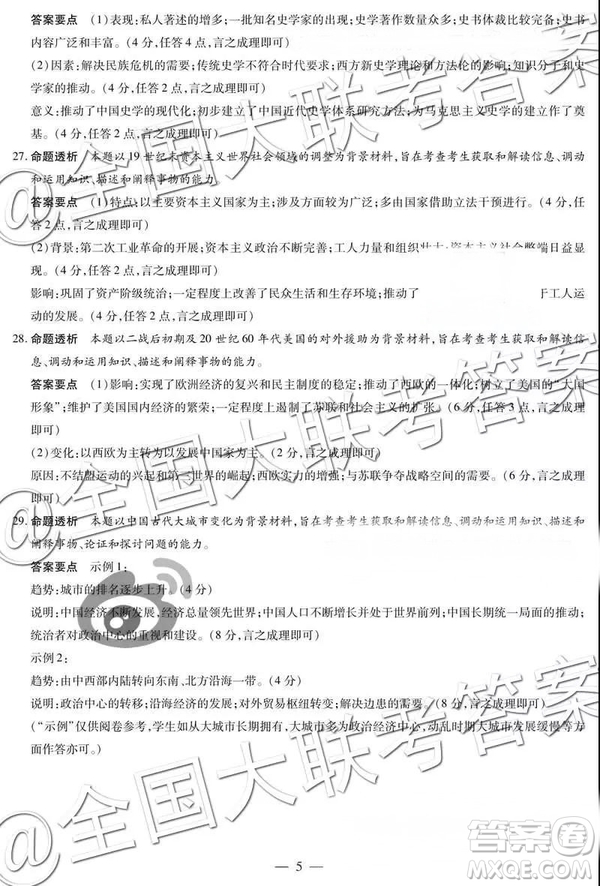 答案要点 (1)表现:私人著述的增多;一批知名史学家的出现;史学著作数量众多;史书体裁比较完备;史书
内容广泛和丰富。(4分,任答4点,言之成理即可)
(2)因素:解决民族危机的需要;传统史学不符合时代要求;西方新史学理论和方法论的影响;知识分子和史
学家的推动。(4分,任答2点,言之成理即可)
意义:推动了中国史学的现代化;初步建立了中国近代史学体系研究方法;为马克思主义史学的建立作了奠
基。(4分,任答2点,言之成理即可)
27. 命题透析 本题以19世纪末资本主义世界社会领域的调整为背景材料,旨在考查考生获取和解读信息、调动
和运用知识、描述和阐释事物的能力。
答案要点 (1)特点:以主要资本主义国家为主;涉及方面较为广泛;多由国家借助立法干预进行。(4分,任
答2点,言之成理即可)
(2)背景:第二次工业革命的开展;资本主义政治不断完善;工人力量和组织壮大;资本主义社会弊端日益显
现。(4分,任答2点,言之成理即可)
影响:巩固了资产阶级统治;一定程度上改善了民众生活和生存环境;推动了 于工人运
动的发展。(4分,任答2点,言之成理即可)
28. 命题透析 本题以二战后初期及20世纪60年代美国的对外援助为背景材料,旨在考查考生获取和解读信
息、调动和运用知识、描述和阐释事物的能力。
答案要点 (1)影响:实现了欧洲经济的复兴和民主制度的稳定;推动了西欧的一体化;树立了美国的“大国
形象”;维护了美国国内经济的繁荣;一定程度上遏制了苏联和社会主义的扩张。(6分,任答3点,言之成理
即可)
(2)变化:以西欧为主转为以发展中国家为主。(2分)
原因:不结盟运动的兴起和第三世界的崛起;西欧实力的增强;与苏联争夺战略空间的需要。(6分,言之成
理即可)
29. 命题透析 本题以中国古代大城市变化为背景材料,旨在考查考生获取和解读信息、调动和运用知识、描述和
阐释事物、论证和探讨问题的能力。
答案要点 示例1:
趋势:城市的排名逐步上升。(4分)
说明:中国经济不断发展,经济总量领先世界;中国人口不断增长并处于世界前列;中国长期统一局面的推动;
统治者对政治中心的重视和建设。(8分,言之成理即可)
示例2:
趋势:由中西部内陆转向东南、北方沿海一带。(4分)
说明:政治中心的转移;沿海经济的发展;对外贸易枢纽转变;解决边患的需要。(8分,言之成理即可)
(“示例”仅供阅卷参考,学生如从大城市长期拥有,大城市多为政治经济中心,动乱时期大城市发展缓慢等方
面作答亦可。)
— 5 —
@全国大联考答案
@全国大联考答案
@全国大联考答案
答案圈
MXQE.COM